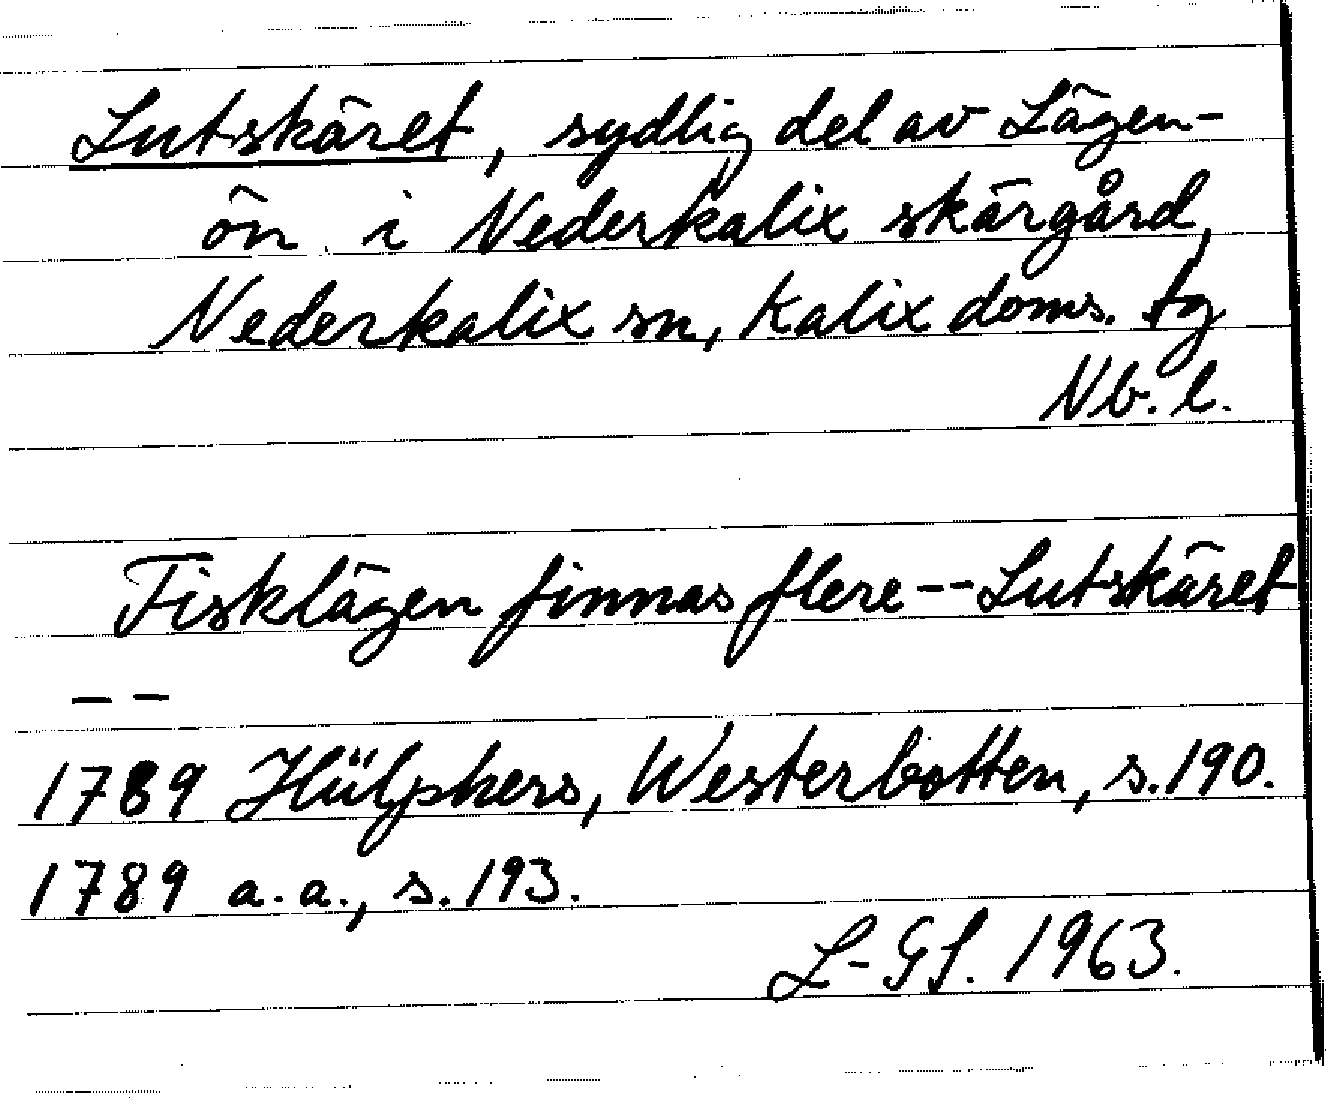 Lutskäret, sydlig del av Lägen-
ön i Nederkalix skärgård,
Nederkalix sn, Kalix doms. tg
Nb. l.
Fisklägen finnas flere -- Lutskäret
— —
1789 Hülphers, Westerbotten, s. 190.
1789 a. a., s. 193.
L-GL. 1963.